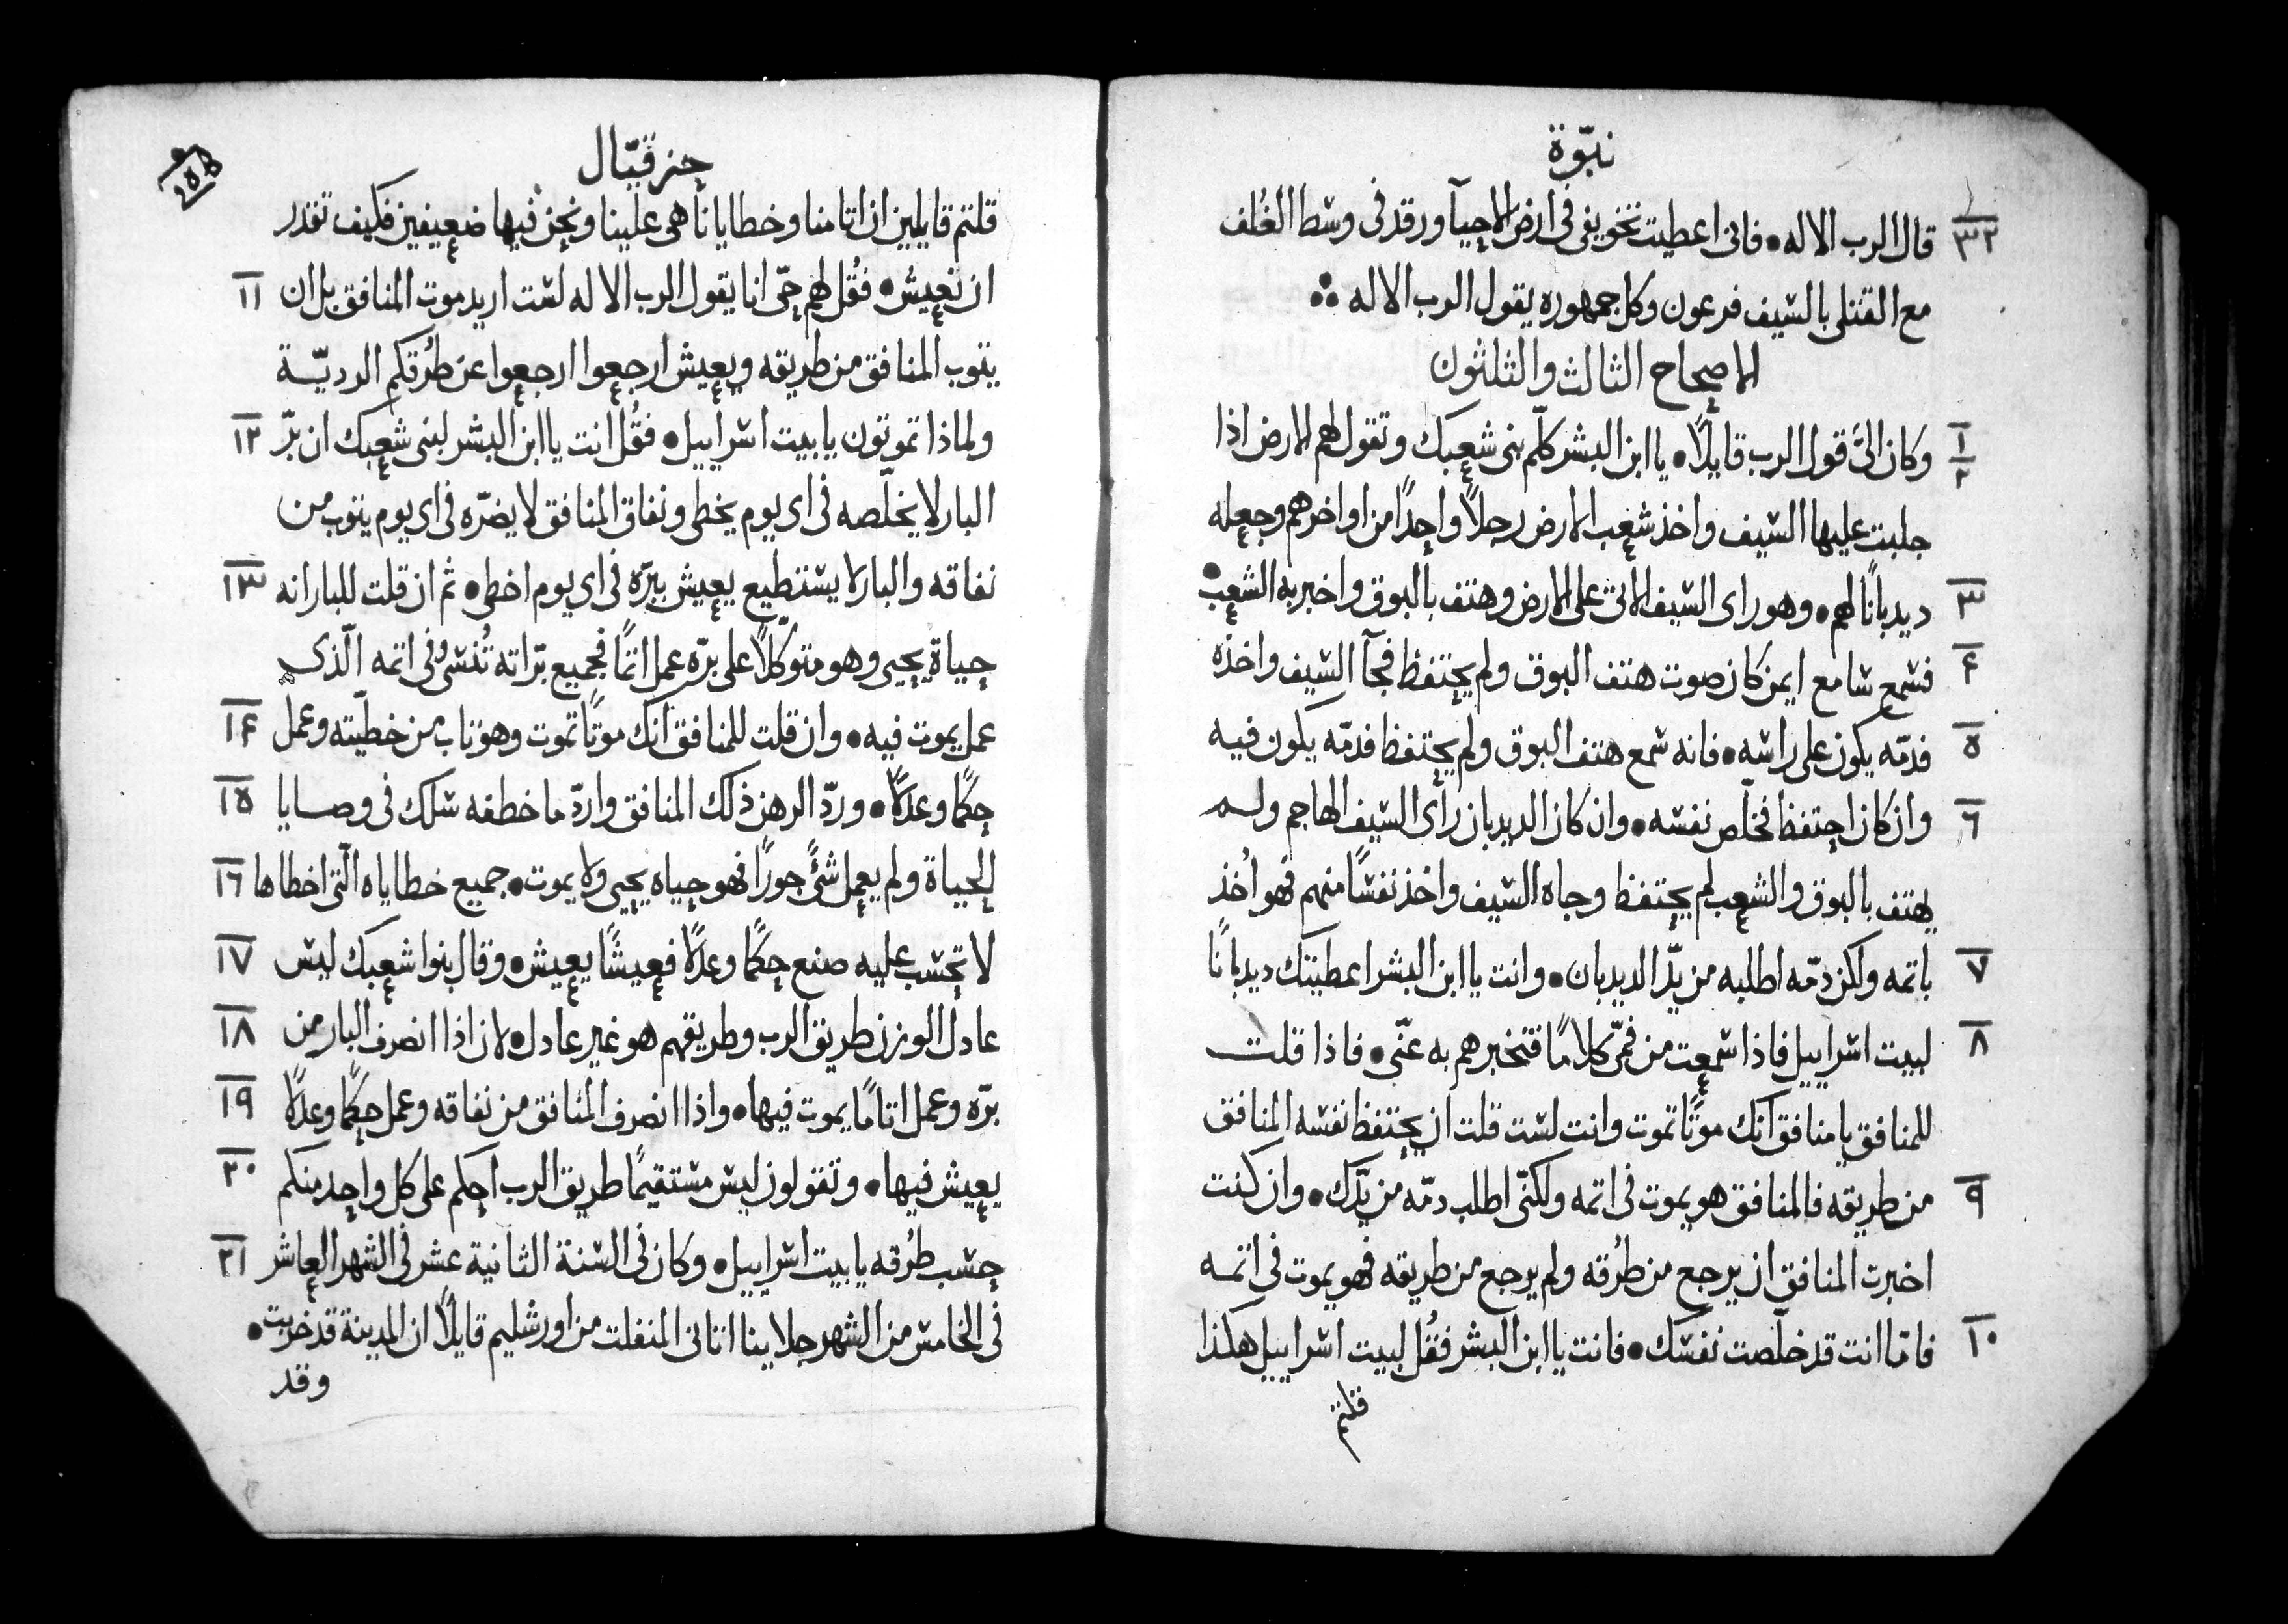 نبوّة
٣٢ قال الرب الاله • فانى اعطيت تخويفى فى ارض الاحيآ ورقد فى وسط الغلف
مع القتلى بالسيف فرعون وكل جمهوره يقول الرب الاله
الاصحاح الثالث والثلثون
١ ٢ وكان الىَّ قول الرب قايلاً • يا ابن البشر كلّم بنى شعبك وتقول لهم الارض اذا
جلبت عليها السيف واخذ شعب الارض رجلاً واحداً من اواخرهم وجعله
٣ ديدباناً لهم • وهو راى السيف الاتى على الارض وهتف بالبوق واخبر به الشعب •
۴ فسمع سامع ايمن كان صوت هتف البوق ولم يحتفظ فجآ السيف واخذه
٥ فدمّه يكون على راسه • فانه سمع هتف البوق ولم يحتفظ فدمّه يكون فيه
٦ وان كان احتفظ فخلّص نفسه • وان كان الديدبان رأى السيف الهاجم ولم
يهتف بالبوق والشعب لم يحتفظ وجاه السيف واخذ نفسًا منهم فهو اُخذ
٧ باتمه ولكن دمّه اطلبه من يدّ الديدبان • وانت يا ابن البشر اعطيتك ديدبانًا
٨ لبيت اسراييل فاذا سمعت من فمّى كلامًا فتخبرهم به عنّى • فاذا قلت
للمنافق يا منافق انّك موتًا تموت وانت لست قلت ان يحتفظ نفسه المنافق
٩ من طريقه فالمنافق هو يموت فى اتمه ولكنّى اطلب دمّه من يدّك • وان كنت
اخبرت المنافق ان يرجع من طُرقه ولم يرجع من طريقه فهو يموت فى اتمه
١٠ فامّا انت قد خلّصت نفسك • فانت يا ابن البشر فقُل لبيت اسراييل هكذا
قلتم
حزقيّال
قلتم قايلين ان اتامنا وخطايانا هى علينا ونحن فيها ضعيفين فكيف نقدر
١١ ان نعيش • فقُل لهم حىّ انا يقول الرب الاله لست اريد موت المنافق بل ان
يتوب المنافق من طريقه ويعيش ارجعوا ارجعوا عن طُرقكم الرديّة
١٢ ولماذا تموتون يا بيت اسراييل • فقُل انت يا ابن البشر لبنى شعبك ان برّ
البار لا يخلّصه فى اى يوم يخطى ونفاق المنافق لا يضرّه فى اى يوم يتوب من
١٣ نفاقه والبار لا يستطيع يعيش ببرّه فى اى يوم اخطى • ثم ان قلت للبار انه
حياة يحيى وهو متوكّلاً على برّه عمل اتمًا فجميع برّاته تُنسى وفى اتمه الّذى
١۴ عمل يموت فيه • وان قلت للمنافق انّك موتًا تموت وهو تاب من خطيّته وعمل
١٥ حكمًا وعدلاً • وردّ الرهن ذلك المنافق واردّ ما خطفه سلك فى وصايا
١٦ الحياة ولم يعمل شئ جورًا فهو حياه يحيى ولا يموت • جميع خطاياه الّتى اخطاها
١٧ لا تحسب عليه صنع حكمًا وعدلاً فعيشًا يعيش • وقال بنوا شعبك ليس
١٨ عادل الوزن طريق الرب وطريقهم هو غير عادل • لان اذا انصرف البار من
١٩ برّه وعمل اتامًا يموت فيها • واذا انصرف المنافق من نفاقه وعمل حكمًا وعدلاً
٢٠ يعيش فيها • وتقولون ليس مستقيمًا طريق الرب احكم على كل واحد منكم
٢١ حسب طُرقه يا بيت اسراييل • وكان فى السنة الثانية عشر فى الشهر العاشر
فى الخامس من الشهر جلاينا اتانى المنفلت من اورشليم قايلاً ان المدينة قد خربت •
وقد